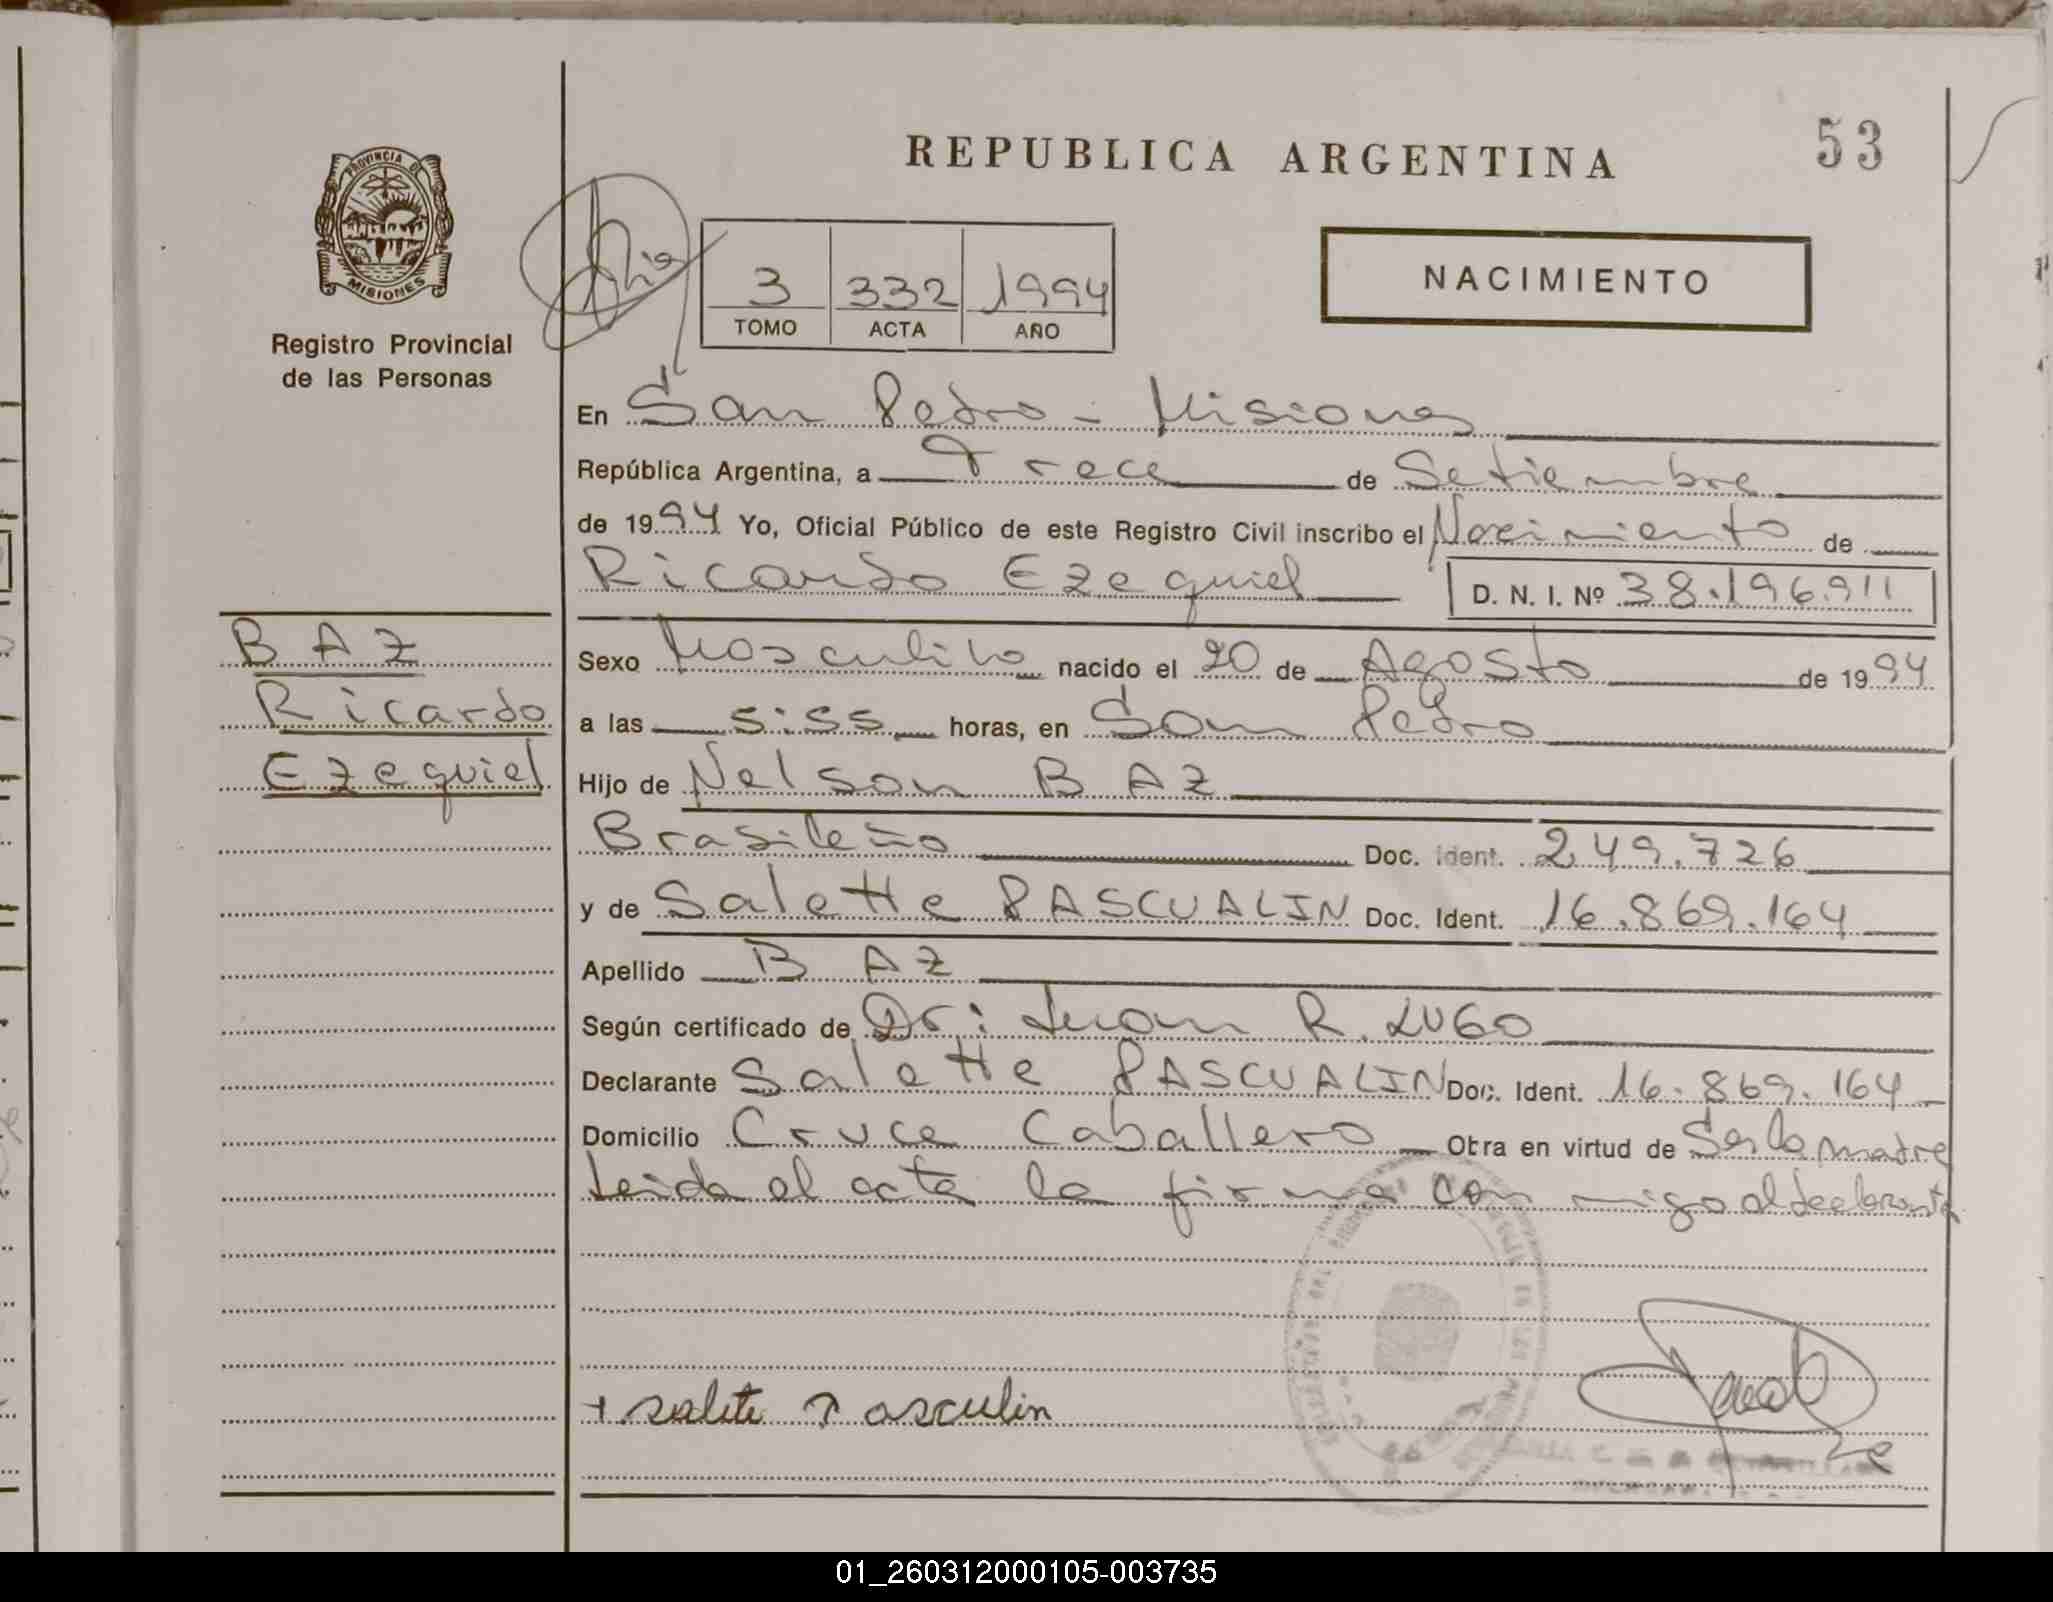 REPUBLICA ARGENTINA
53
PROVINCIA DE
MISIONES
Registro Provincial
de las Personas
3 332 1994
TOMO ACTA AÑO
NACIMIENTO
En San Pedro - Misiones
República Argentina, a Trece de Setiembre
de 1994 Yo, Oficial Público de este Registro Civil inscribo el Nacimiento de
Ricardo Ezequiel D. N. I. Nº 38.196.911
BAZ
Ricardo
Ezequiel
Sexo Masculino nacido el 20 de Agosto de 1994
a las 5:55 horas, en San Pedro
Hijo de Nelson BAZ
Brasileño Doc. Ident. 249.726
y de Salette PASCUALIN Doc. Ident. 16.869.164
Apellido BAZ
Según certificado de Dr: Juan R. LUGO
Declarante Salette PASCUALIN Doc. Ident. 16.869.164
Domicilio Cruce Caballero Obra en virtud de Ser la madre
Leida el acta la firma con migo el declarante
+ salete Pasculin
01_260312000105-003735